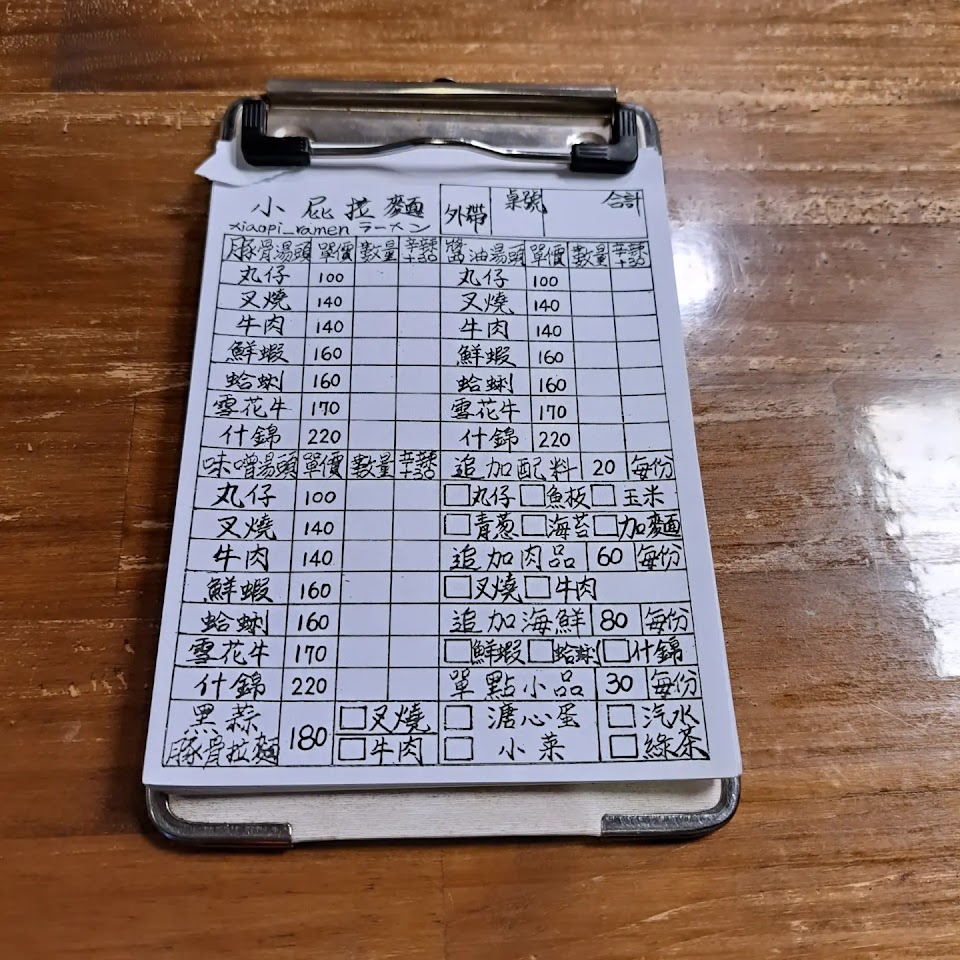 小屁拉麵 外帶 桌號 合計
xiaopi_ramen ラーメン
豚骨湯頭 單價 數量 辛辣+30 醬油湯頭 單價 數量 辛辣+30
丸仔 100 丸仔 100
叉燒 140 叉燒 140
牛肉 140 牛肉 140
鮮蝦 160 鮮蝦 160
蛤蜊 160 蛤蜊 160
雪花牛 170 雪花牛 170
什錦 220 什錦 220
味噌湯頭 單價 數量 辛辣+30 追加配料 20 每份
丸仔 100 □丸仔 □魚板 □玉米
叉燒 140 □青蔥 □海苔 □加麵
牛肉 140 追加肉品 60 每份
鮮蝦 160 □叉燒 □牛肉
蛤蜊 160 追加海鮮 80 每份
雪花牛 170 □鮮蝦 □蛤蜊 □什錦
什錦 220 單點小品 30 每份
黑蒜 180 □叉燒 □溏心蛋 □汽水
豚骨拉麵 □牛肉 □小菜 □綠茶